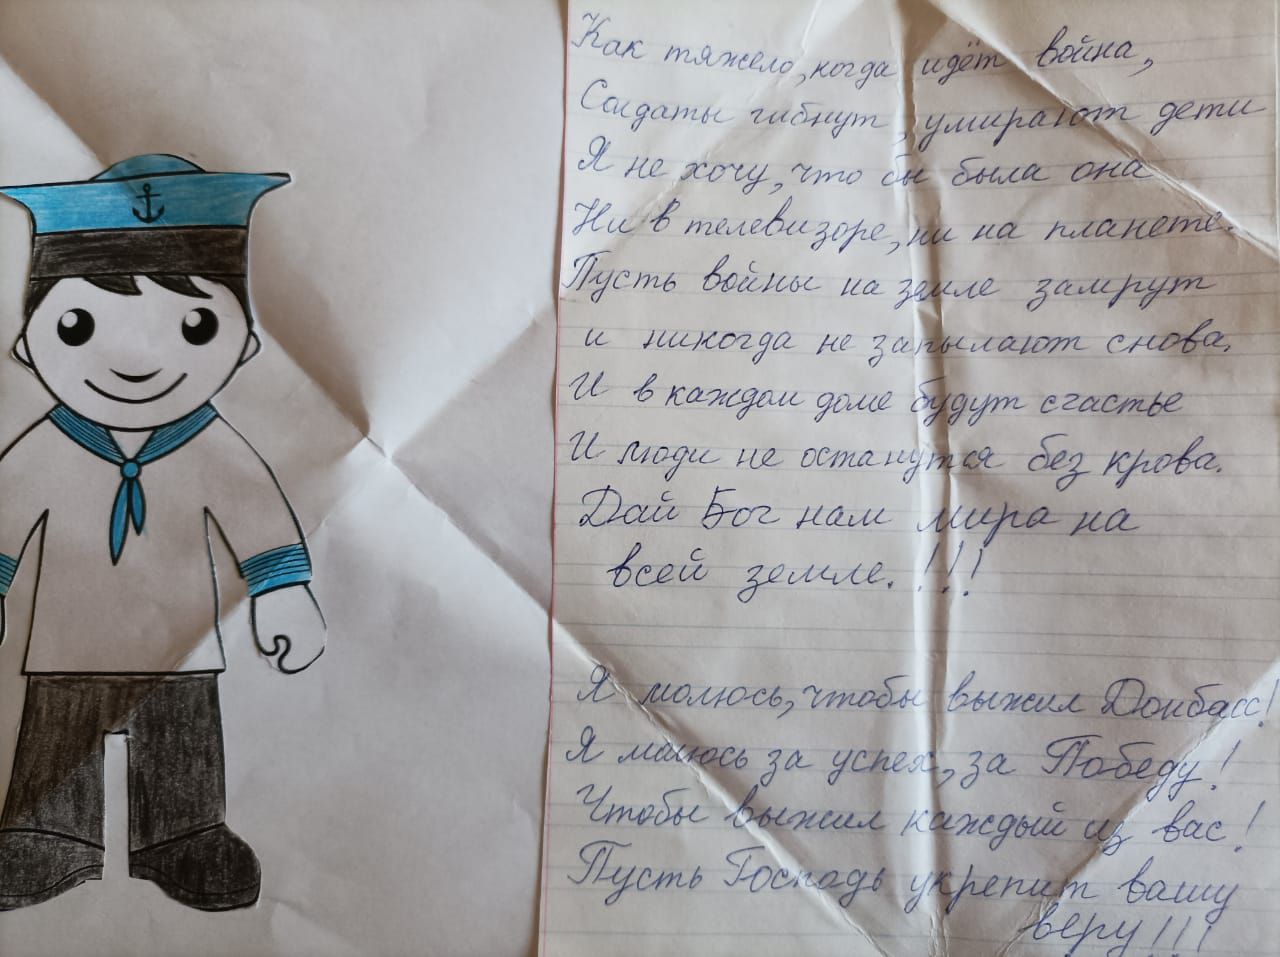 Как тяжело, когда идёт война,
Солдаты гибнут, умирают дети
Я не хочу, что бы была она
Ни в телевизоре, ни на планете.
Пусть войны на земле замрут
и никогда не запылают снова.
И в каждом доме будут счастье
И люди не останутся без крова.
Дай Бог нам мира на
всей земле.!!!
Я молюсь, чтобы выжил Донбасс!
Я молюсь за успех, за Победу!
Чтобы выжил каждый из вас!
Пусть Господь укрепит вашу
веру!!!